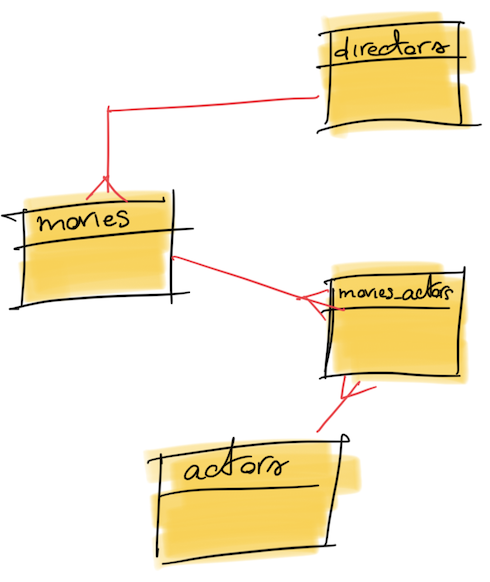 directors
movies
movies_actors
actors